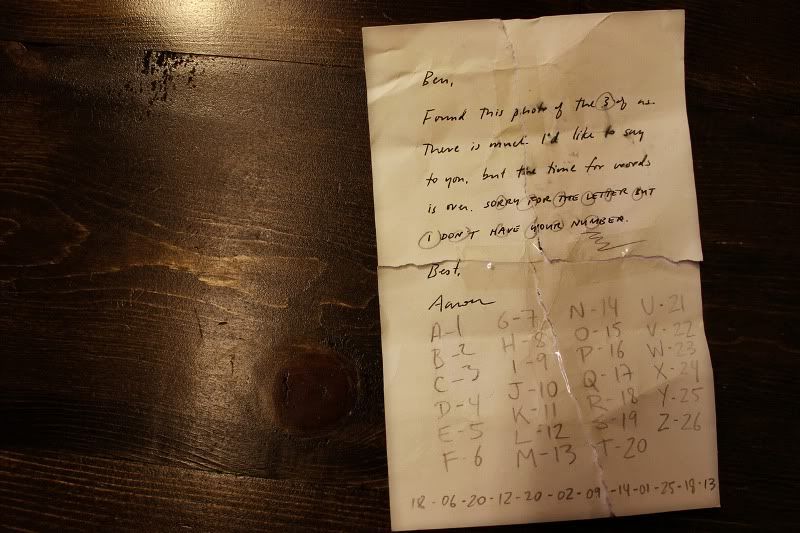 Ben,
Found this photo of the 3 of us.
There is much I'd like to say
to you, but the time for words
is over. SORRY FOR THE LETTER BUT
I DON'T HAVE YOUR NUMBER.
Best,
Aaron
A-1 G-7 N-14 U-21
B-2 H-8 O-15 V-22
C-3 I-9 P-16 W-23
D-4 J-10 Q-17 X-24
E-5 K-11 R-18 Y-25
F-6 L-12 S-19 Z-26
M-13 T-20
18-06-20-12-20-02-09-14-01-25-18-13